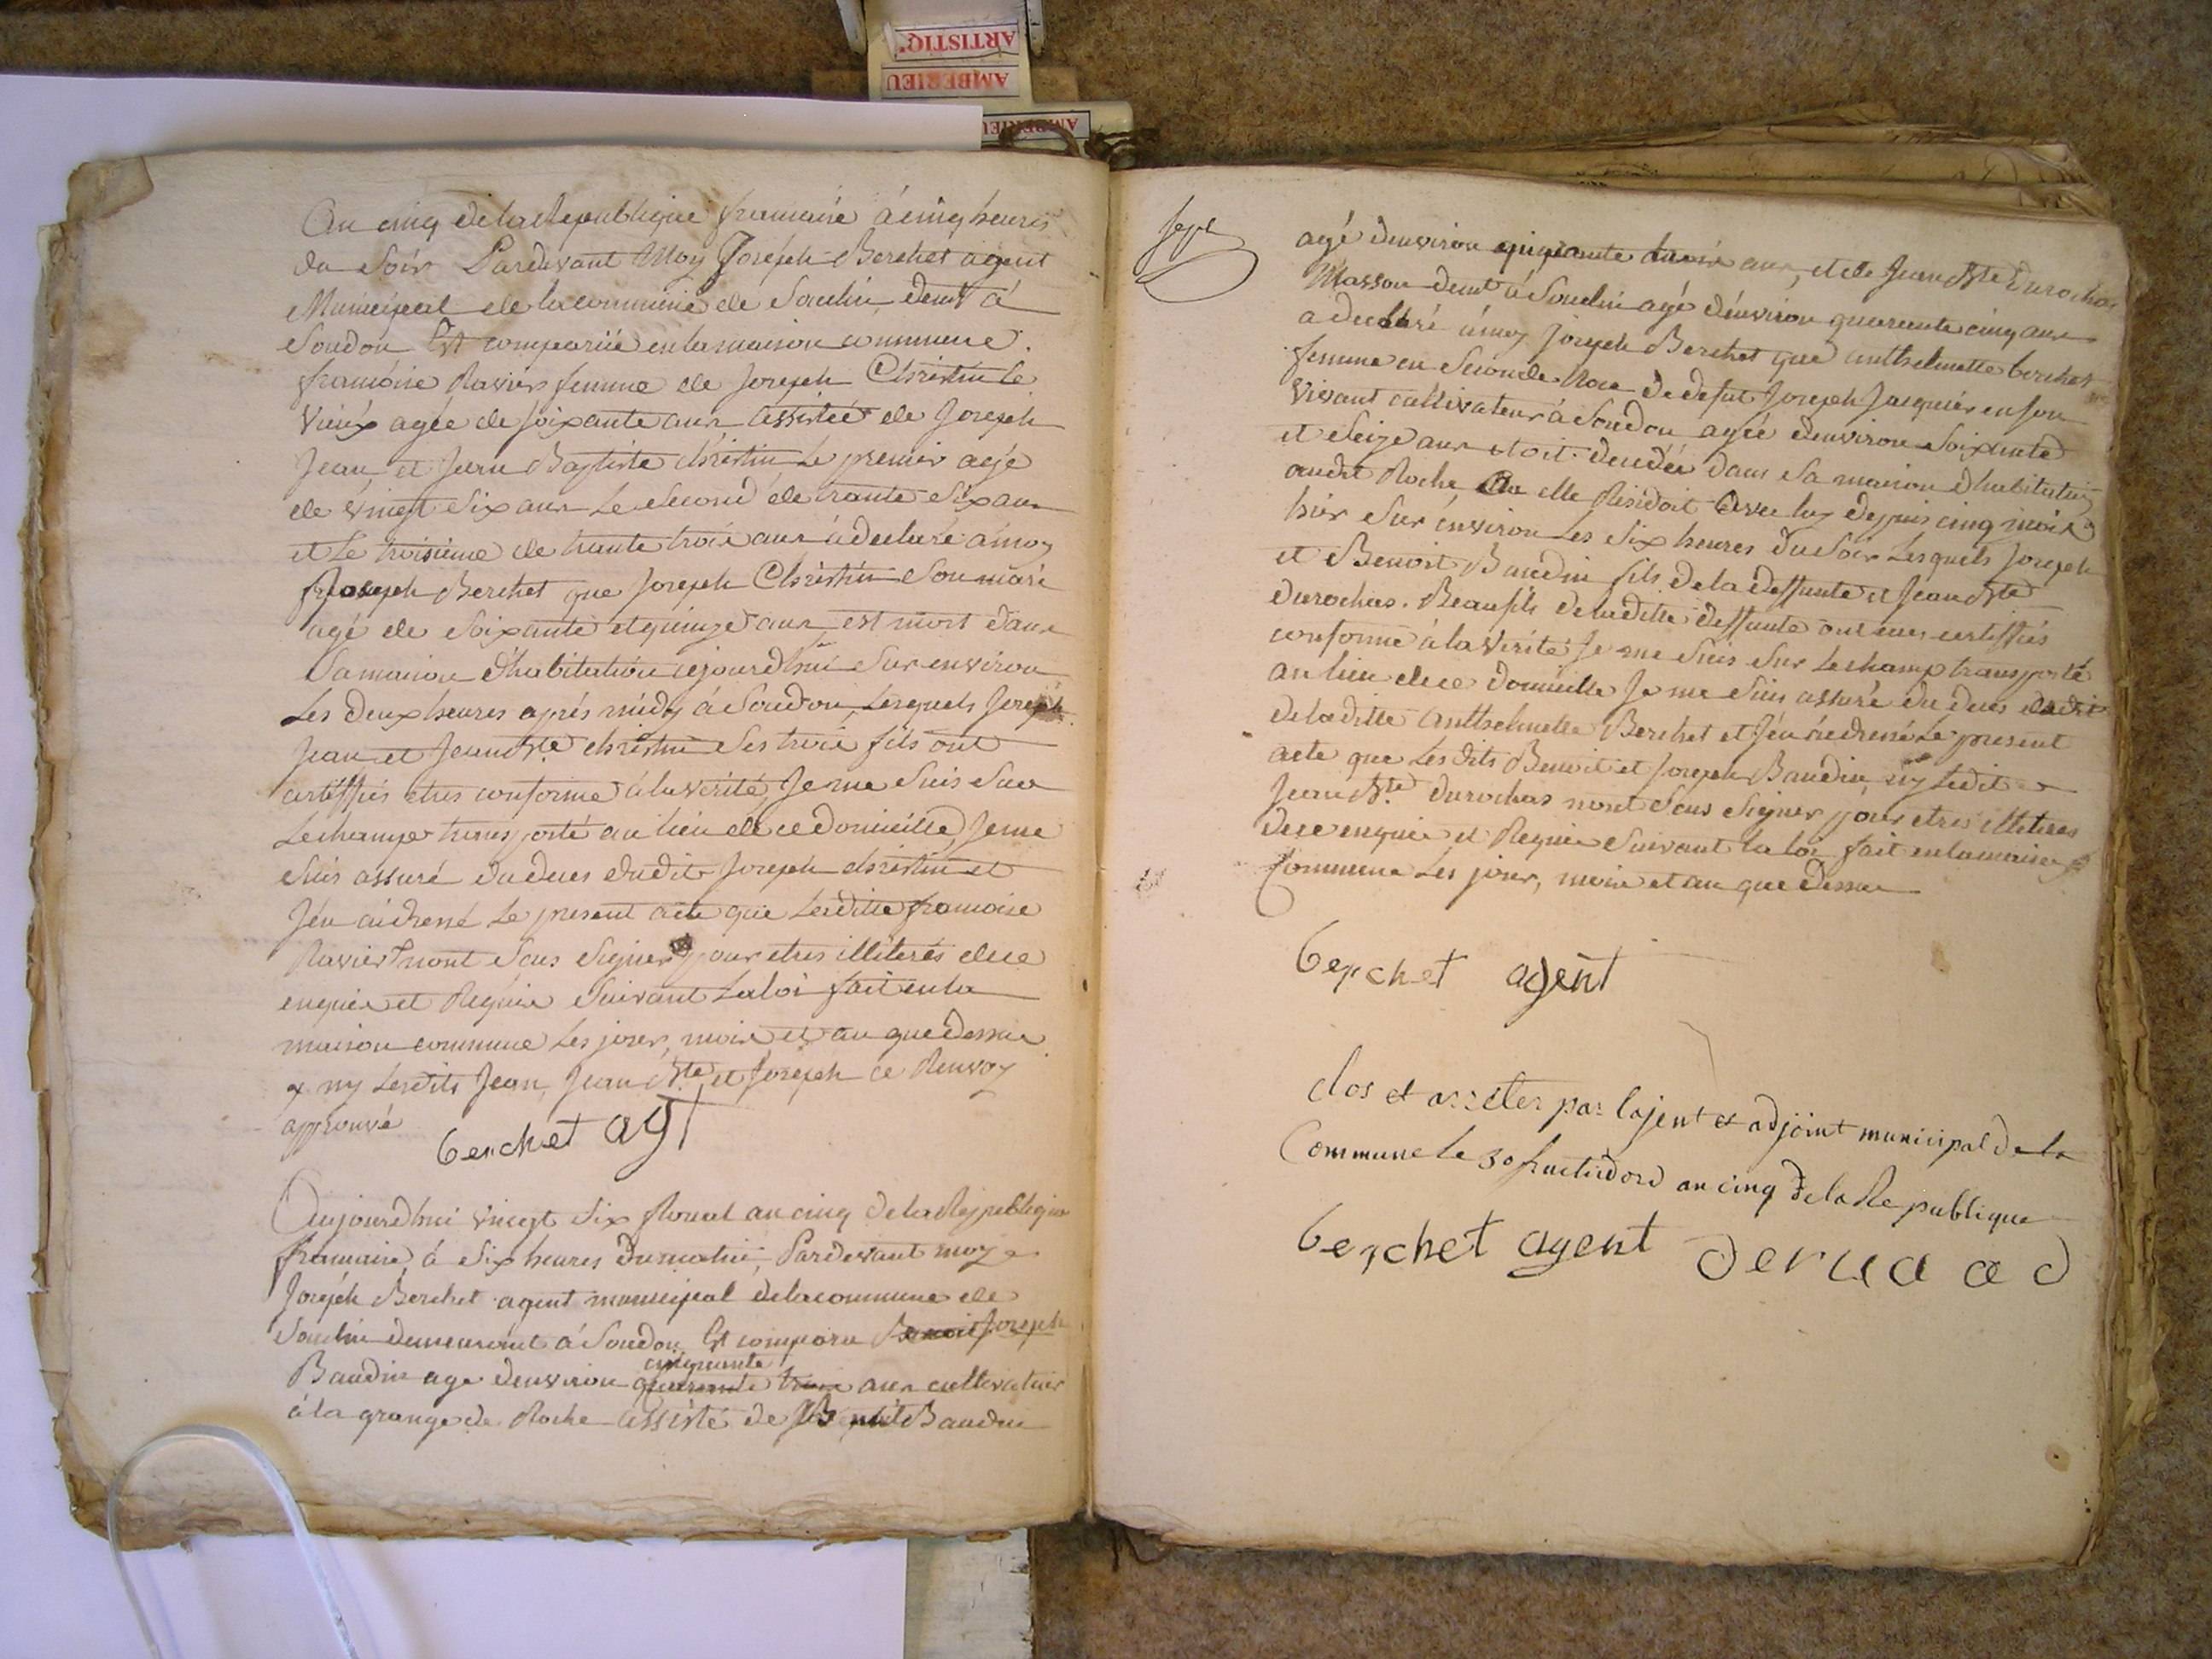 ARTISTIQ'
AMBERIEU
AMBERIEU
An cinq de la Republique francaise à cinq heures
du Soir Pardevant Moy Joseph Berchet agent
Municipal de la commune de Soudin demt à
Soudon Est comparüe en la maison commune
francoise Ravier femme de Joseph Christin Le
Vieux agée de soixante ans assistée de Joseph
Jean, et Jean Baptiste christin Le premier agé
de vingt Six ans Le Second de trante Six ans
et Le troisieme de trante trois ans à declaré à moy
Joseph Berchet que Joseph Christin Son mari
agé de Soixante et quinze ans, est mort dans
Sa maison d'habitation cejourdhui Sur environ
Les deux heures aprés midy à Soudon, Lesquels Joseph
Jean et Jean Bte christin Ses trois fils ont
certiffiés etres conforme à la verité, Je me Suis Sur
Lechamps transporté au lieu de ce domicille, Je me
Suis assuré du deces dudit Joseph christin et
J'en ai dressé Le present acte que Laditte francoise
Ravier nont Sous Signer pour etres illiterés de ce
enquis et Requis Suivant La loi fait en la
maison commune Les jour, mois et an que dessus
x ny Lesdits Jean, Jean Bte et Joseph ce Renvoy
approuvé
berchet agt
Aujourdhui vingt Six floreal an cinq de la Republique
francaise, à Six heures du matin, Pardevant moy
Joseph Berchet agent municipal de la commune de
Soudin demeurant à Soudon Est comparu Benoit Joseph
cinquante
Baudin age d'environ quarante trois ans cultivateur
à la grange de Roche assisté de Benoit Baudin
Sept
agé d'environ cinquante ans, et de Jean Bte Durochas
Masson demt à Soudin agé d'environ quarante cinq ans
a declaré à moy Joseph Berchet que anthelmette berchet
femme en Seconde Noce de defut Joseph Jacquier en son
vivant cultivateur à Soudon agée d'environ Soixante
et Seize ans etoit decedée dans Sa maison d'habitation
audit Roche, ou elle Residoit avec luy depuis cinq mois
hier Sur environ Les Six heures du Soir Lesquels Joseph
et Benoit Baudin fils de la deffunte et Jean Bte
Durochas. Beaufils de laditte deffunte ont certiffiés
conforme à la verité Je me Suis Sur Lechamp transporté
au lieu de ce domicille Je me Suis assuré du deces
de laditte anthelmette Berchet et J'en ai dressé Le present
acte que Lesdits Benoit et Joseph Baudin, ny Ledit
Jean Bte Durochas nont Sous Signer pour etres illiteres
de ce enquis et Requis Suivant la loi fait en la maison
Commune Les jour, mois et an que dessus
berchet agent
clos et arreter par lajent et adjoint municipal de la
Commune Le 30 fructidord an cinq de la Republique
berchet agent derua ad